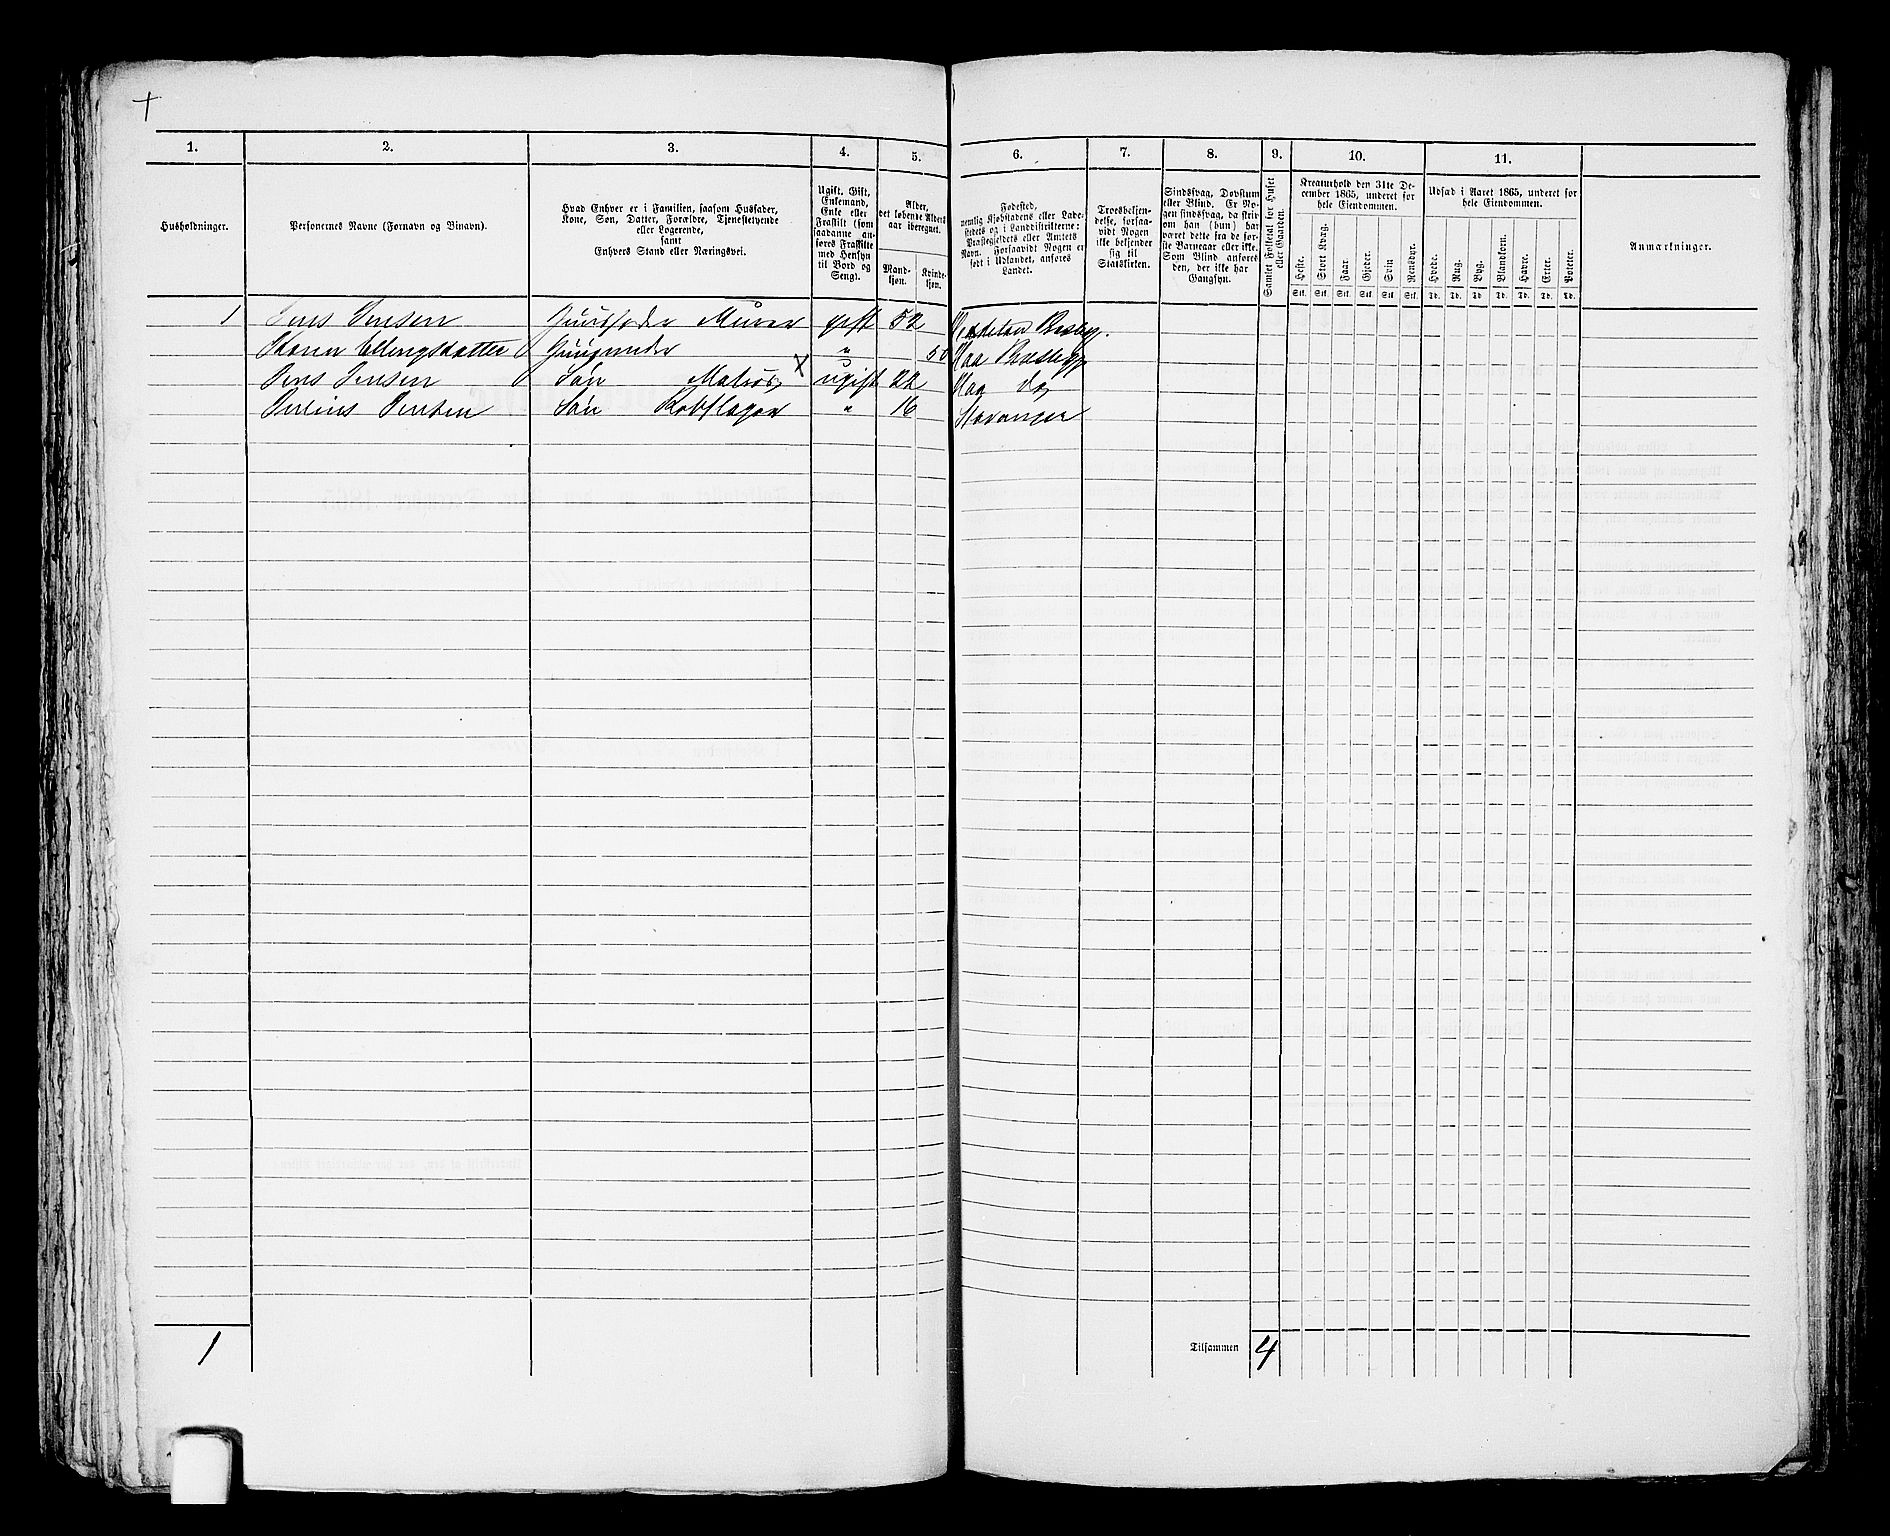 1. 2. 3. 4. 5. 6. 7. 8. 9. 10. 11.
Husholdninger.
Personernes Navne (Fornavn og Binavn).
Hvad Enhver er i Familien, saasom Husfader,
Kone, Søn, Datter, Forældre, Tjenestetyende
eller Logerende,
samt
Enhvers Stand eller Næringsvei.
Ugift, Gift,
Enkemand,
Enke eller
Fraskilt (som
saadanne an-
føres Fraskilte
med Hensyn
til Bord og
Seng).
Alder,
det løbende Alders-
aar iberegnet.
Mand-
kjøn.
Kvinde-
kjøn.
Fødested,
nemlig Kjøbstadens eller Lade-
stedets og i Landdistrikterne:
Præstegjeldets eller Amtets
Navn. Forsaavidt Nogen er
født i Udlandet, anføres
Landet.
Troesbekjen-
delse, forsaa-
vidt Nogen
ikke bekjender
sig til
Statskirken.
Sindssvag, Døvstum
eller Blind. Er No-
gen sindssvag, da skriv
om han (hun) har
været dette fra de før-
ste Barneaar eller ikke.
Som Blind anføres
den, der ikke har
Gangsyn.
Samlet Folketal for Huset
eller Gaarden.
Kreaturhold den 31te De-
cember 1865, underet for
hele Eiendommen.
Heste. Stort Kvæg. Faar. Gjeder. Svin Rensdyr.
Stk. Stk. Stk. Stk. Stk. Stk.
Udsæd i Aaret 1865, underet for
hele Eiendommen.
Hvede. Rug. Byg. Blandkorn. Havre. Erter. Poteter.
Td. Td. Td Td. Td. Td. Td.
Anmærkninger.
1 Jens Jensen Huusfader Murer gift 52
Karen Ellingsdatter Huusmoder " 50
Jens Jensen Søn Matros X ugift 22
Julius Jensen Søn Kobslager " 16 Stavanger
1 Tilsammen 4